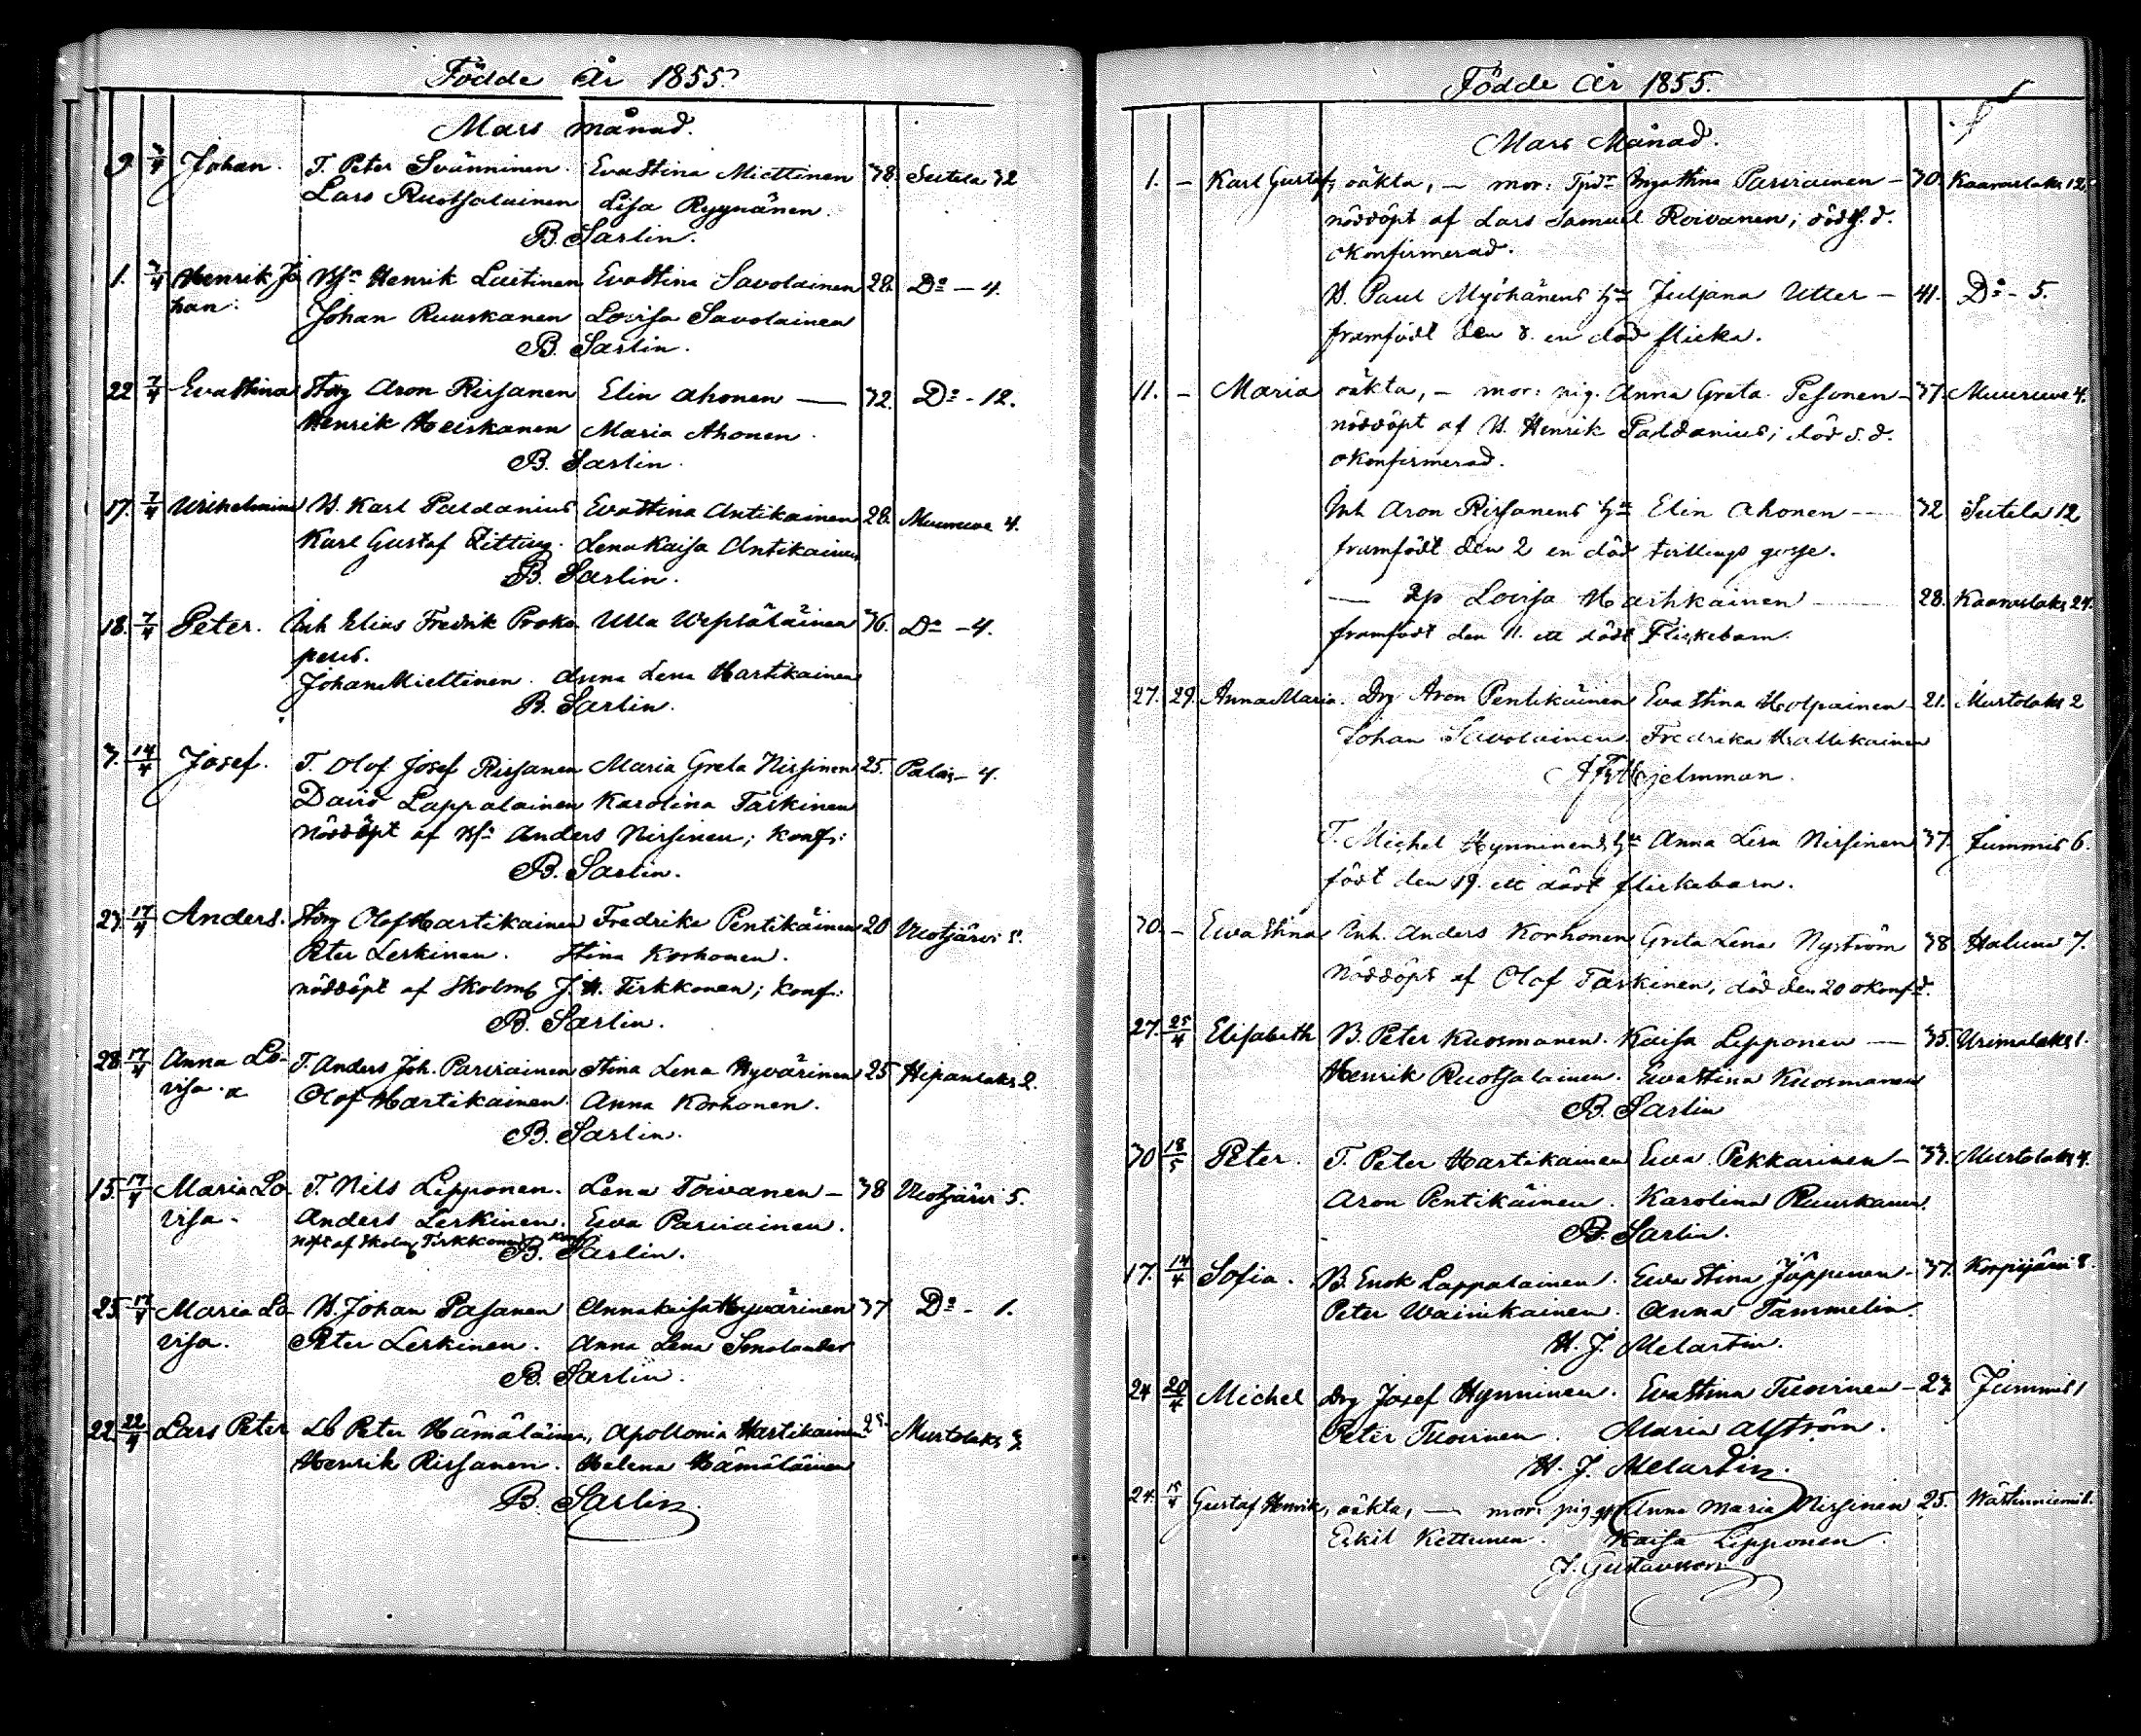 Födde År 1855.
Mars månad.
9. 3/4 Johan. T. Peter Svänninen. Eva Stina Miettinen 38. Sutela 32
Lars Ruotsalainen Lisa Ryynänen.
B. Sarlin.
1. 3/4 Henrik Jo Bs:n Henrik Laitinen Eva Stina Savolainen 28. D:o - 4.
han. Johan Ruuskanen Lovisa Savolainen
B. Sarlin.
22 7/4 Eva Stina Aron Rissanen Elin Ahonen — 32. D:o - 12.
Henrik Heiskanen Maria Ahonen.
B. Sarlin.
17. 7/4 Wilhelmina B. Karl Paldanius Eva Stina Antikainen 28. Muuruve 4.
Karl Gustaf Zitting. Lena Kaisa Antikainen
B. Sarlin.
18. 7/4 Peter. Inh Elias Fredrik Proko Ulla Wepsäläinen 36. D:o - 4.
peus.
Johan Miettinen. Anna Lena Hartikainen
B. Sarlin.
3. 14/4 Josef. T. Olof Josef Rissanen Maria Greta Nissinen 25. Palais - 4.
David Lappalainen Karolina Taskinen
Nöddöpt af Bs:n Anders Nissinen; konf:
B. Sarlin.
23. 17/4 Anders. Olof Hartikainen Fredrika Pentikäinen 20 Weotjärvi 5.
Peter Leskinen. Stina Korhonen.
nöddöpt af Skolm J. H. Tirkkonen; konf:
B. Sarlin.
28. 17/4 Anna Lo- T. Anders Joh. Parviainen Stina Lena Hyvärinen 25 Hipanlaks 2.
visa. Olof Hartikainen Anna Korhonen.
B. Sarlin.
15. 17/4 Maria Lo T. Nils Lipponen. Lena Toivanen - 38 Weotjärvi 5.
visa. Anders Leskinen. Eva Parviainen.
nöpt af Skolm Tirkkonen konf
B. Sarlin.
25. 17/4 Maria Lo B. Johan Pasanen Anna Kaisa Hyvärinen 37 D:o - 1.
visa. Peter Leskinen. Anna Lena Smolander
B. Sarlin.
22. 22/4 Lars Peter Lb Peter Hämäläinen, Apollonia Hartikainen Murtolaks 3
Henrik Rissanen. Helena Hämäläinen
B. Sarlin.
Födde År 1855.
Mars Månad.
1. - Karl Gustaf, oäkta, — mor: Inga Stina Parviainen - 30. Kaavinlaks 12.
nöddöpt af Lars Samuel Roivanen; död s. d.
okonfirmerad.
B. Paul Myöhänens h:u Juljana Utter - 41. D:o - 5.
framfödt den 8. en död flicka.
11. - Maria oäkta, - mor: pig. Anna Greta Pesonen - 37. Muuruve 4.
nöddöpt af B. Henrik Paldanius; död s. d.
okonfirmerad.
Inh Aron Rissanens h:u Elin Ahonen - 32 Sutela 12
framfödt den 2 en död tvillings gosse.
— Lovisa 28. Kaavinlaks 24.
framfödt den 11. ett dödt Flickebarn.
27. 29. Anna Maria. Drg Aron Pentikäinen Eva Stina Holpainen - 21. Murtolaks 2
Johan Savolainen. Fredrika
Hjelmman.
T. Michel Hynninens h:u Anna Lisa Nissinen 37. Jummis 6.
födt den 19. ett dödt flickebarn.
30. - Eva Stina Inh. Anders Korhonen Greta Lena Nyström 38. Haluna 7.
Nöddöpt af Olof Taskinen; död den 20 okonf:d.
27. 25/4 Elisabeth B. Peter Kuosmanen. Kaisa Lipponen — 35. Urimolaks 1.
Henrik Ruotsalainen. Eva Stina Kuosmanen
B. Sarlin
30 18/5 Peter. T. Peter Hartikainen Eva Pekkarinen - 33. Murtolaks 4.
Aron Pentikäinen. Karolina Ruuskanen.
B. Sarlin.
17. 14/4 Sofia. B. Enok Lappalainen. Eva Stina Jäppinen - 37. Korpijärvi 8.
Peter Wainikainen. Anna Tammelin.
H. J. Melartin.
24 20/4 Michel Drg Josef Hynninen. Eva Stina Tuovinen - 23 Jummis 1
Peter Tuovinen. Maria Alström.
H. J. Melartin.
24. 15/4 Gustaf Henrik, oäkta, — mor: pig. Anna Maria Nissinen 25. Wästinniemi 8.
Eskil Kettunen. Kaisa Lipponen.
J. Gustavson